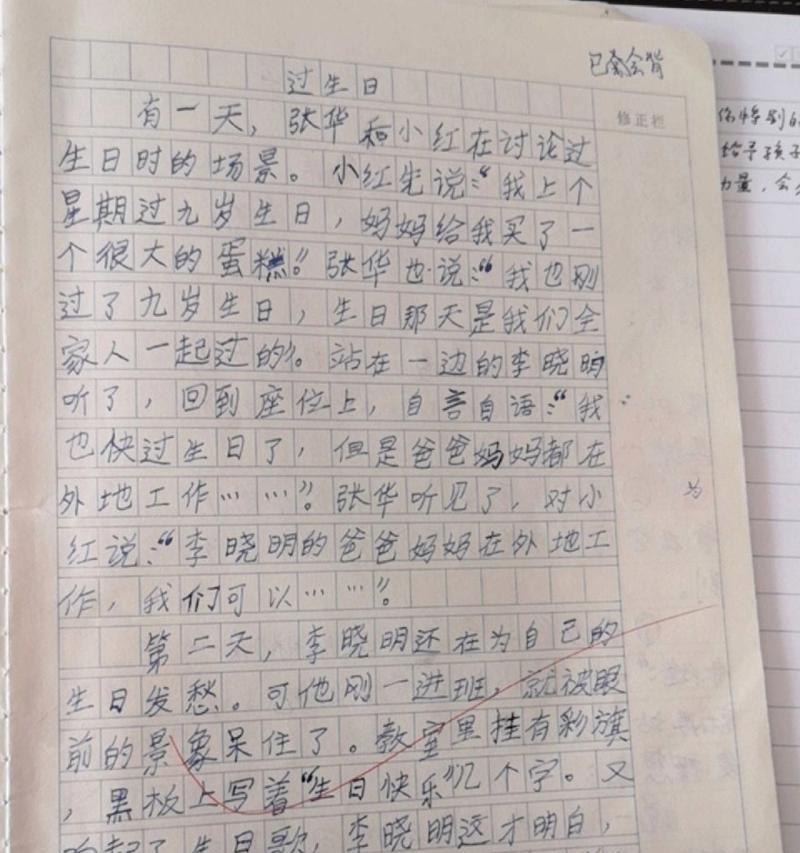 已会会背
过生日
修正栏
有一天，张华和小红在讨论过
生日时的场景。小红先说：“我上个
星期过九岁生日，妈妈给我买了一
个很大的蛋糕。”张华也说：“我也刚
过了九岁生日，生日那天是我们全
家人一起过的”。站在一边的李晓明
听了，回到座位上，自言自语：“我
也快过生日了，但是爸爸妈妈都在
外地工作……”。张华听见了，对小
为
红说：“李晓明的爸爸妈妈在外地工
作，我们可以……”。
第二天，李晓明还在为自己的
生日发愁。可他刚一进班，就被眼
前的景象呆住了。教室里挂有彩旗
，黑板上写着“生日快乐”几个字。又
响起了生日歌，李晓明这才明白，
你特别的
给予孩子
力量，会